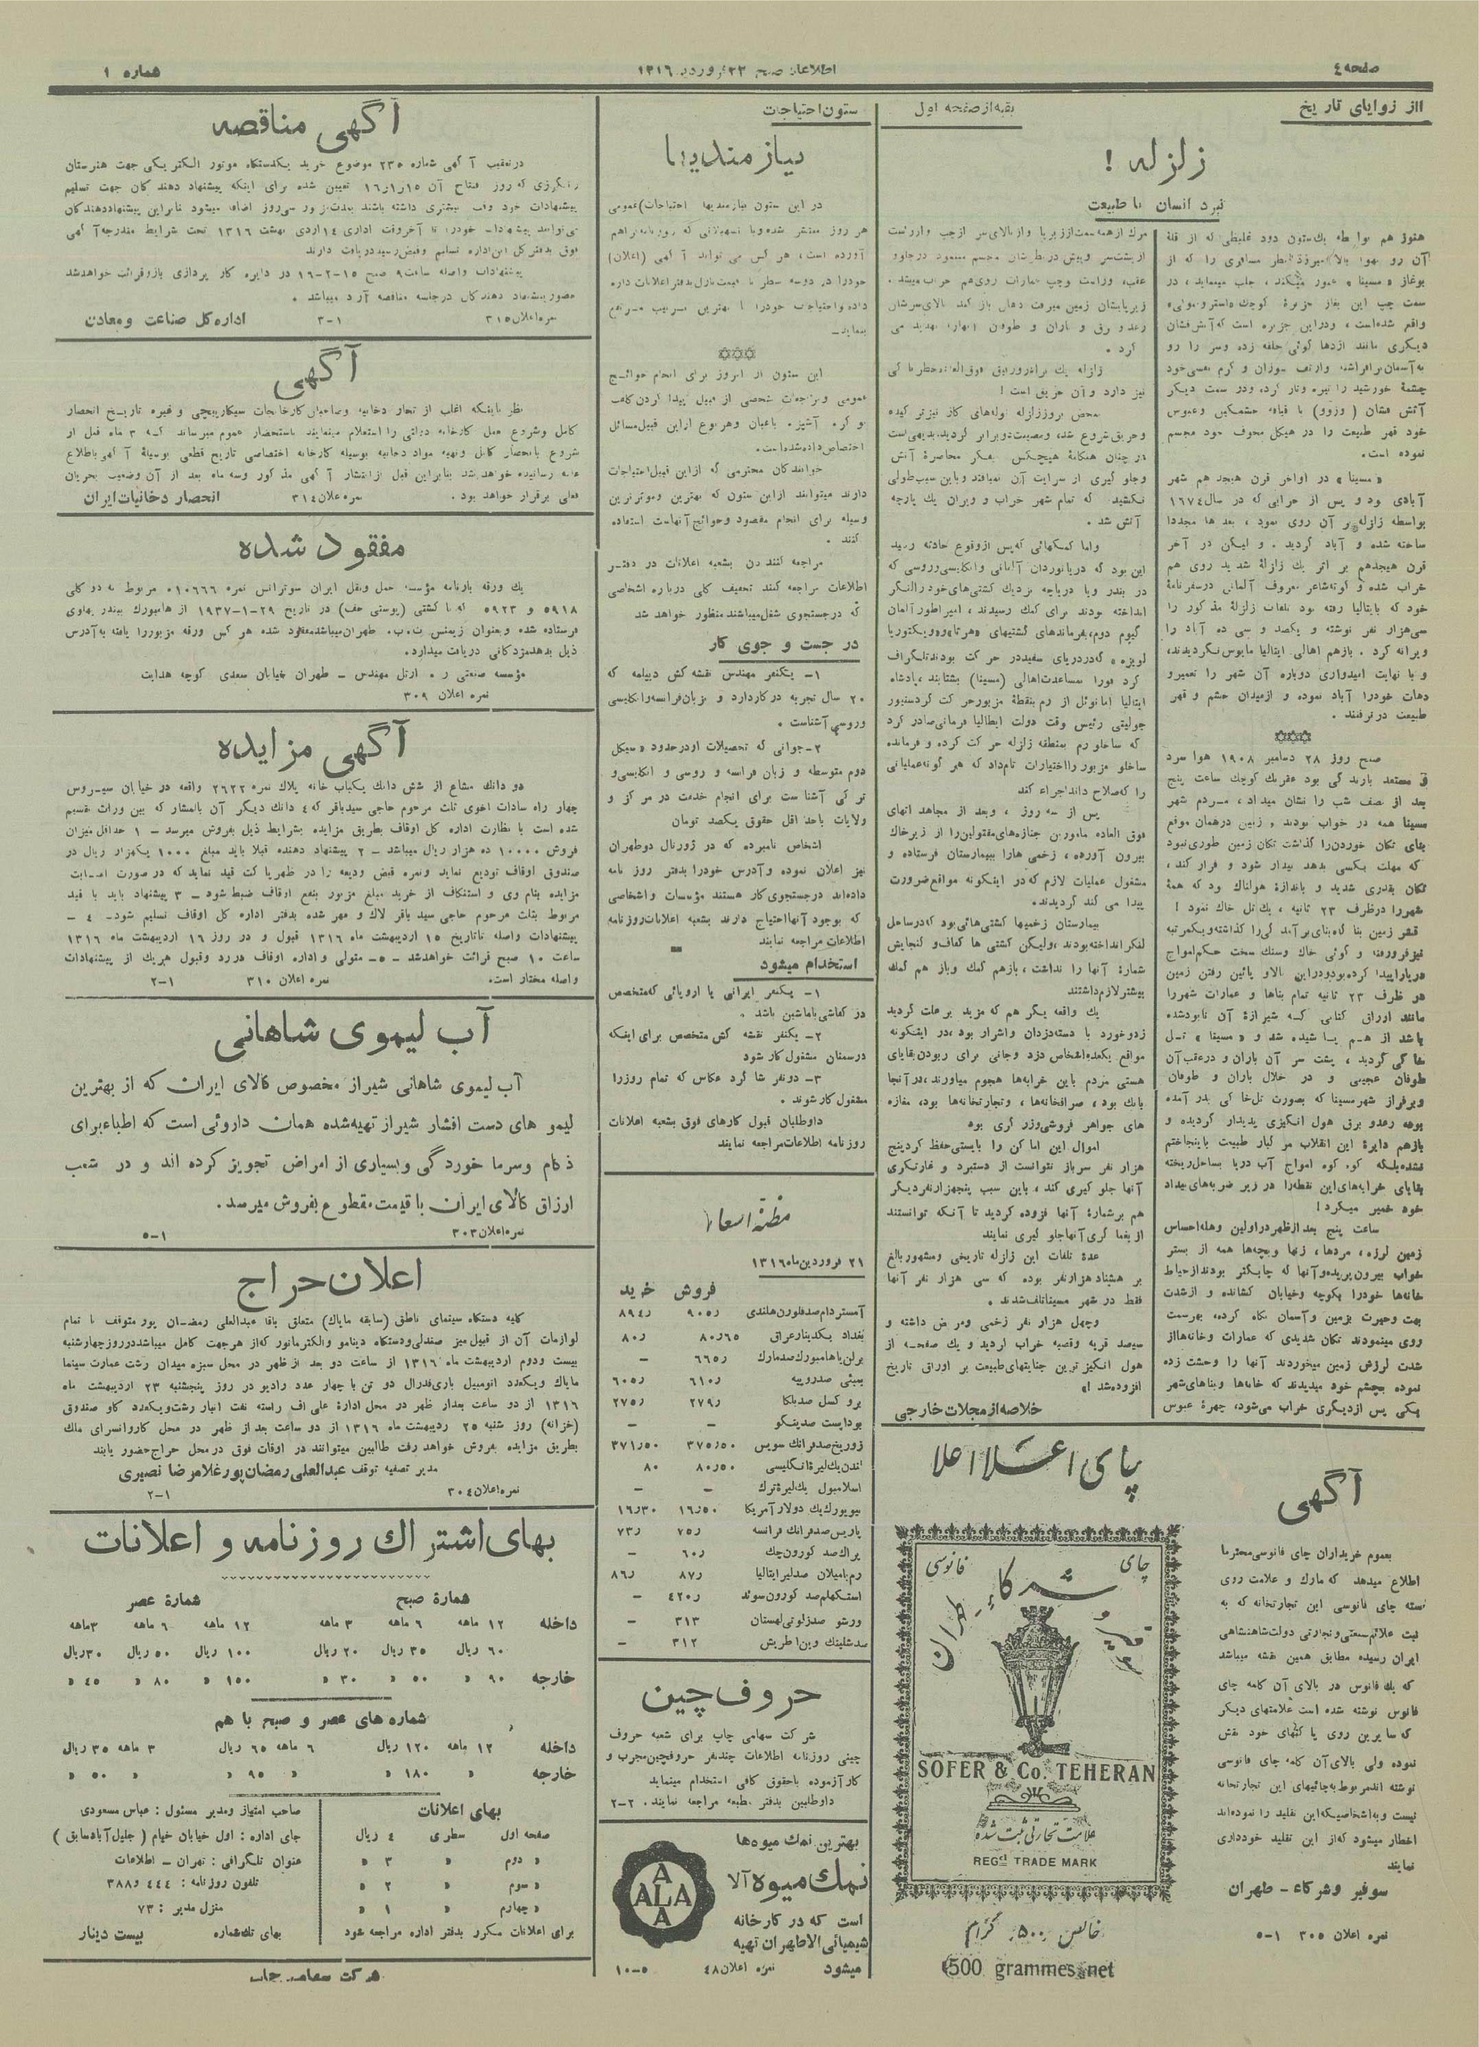 صفحه ٤
اطلاعات صبح ۲۳ فروردین ۱۳۱٦
شماره ۱
از زوایای تاریخ
بقیه از صفحه اول
زلزله !
نبرد انسان با طبیعت
هنوز هم بواسطه یك ستون دود غلیظی که از قلهٔ
آن رو بهوا بالا میرود نظر مسافری را که از
بوغاز « مسینا » عبور میکند ، جلب مینماید ، در
سمت چپ این بغاز جزیرهٔ کوچك
واقع شده است ، و در این جزیره است که آتش فشان
دیگری مانند اژدها گوئی حلقه زده و سر را رو
چشمهٔ خورشید را تیره و تار کرده و در سمت دیگر
آتش فشان ( وزوو ) با قیافه خشمگین و عبوس
خود قهر طبیعت را در هیکل مخوف خود مجسم
نموده است .
« مسینا » در اواخر قرن هیجدهم شهر
آبادی بود و پس از خرابی که در سال ۱٦۷٤
بواسطه زلزله بر آن روی نمود ، بعد ها مجددا
ساخته شده و آباد گردید . و لیکن در آخر
قرن هیجدهم بر اثر یك زلزلهٔ شدید روی هم
خراب شده و گوته شاعر معروف آلمانی در سفرنامهٔ
خود که بایتالیا رفته بود تلفات زلزلهٔ مذکور را
سی هزار نفر نوشته و یکصد و سی ده آباد را
ویرانه کرد . بازهم اهالی ایتالیا مایوس نگردیدند ،
و با نهایت امیدواری دوباره آن شهر را تعمیر و
دهات خود را آباد نموده و از میدان خشم و قهر
طبیعت در نرفتند .
صبح روز ۲۸ دسامبر ۱۹۰۸ هوا سرد
و مستعد بارندگی بود عقربك کوچك ساعت پنج
بعد از نصف شب را نشان میداد ، مردم شهر
مسینا همه در خواب بودند ، زمین در همان موقع
بنای تکان خوردن را گذاشت تکان زمین طوری نبود
که مهلت بکسی بدهد بیدار شود و فرار کند ،
تکان بقدری شدید و باندازهٔ هولناك بود که همهٔ
شهر را در ظرف ۲۳ ثانیه ، یك تل خاك نمود !
در ظرف ۲۳ ثانیه تمام بناها و عمارات شهر را
مانند اوراق کتابی که شیرازهٔ آن نابود شده
باشد از هم پاشیده شد و « مسینا » تل
خاکی گردید ، پشت سر آن باران و در عقب آن
طوفان عجیبی و در خلال باران و طوفان
ساعت پنج بعد از ظهر در اولین وهله احساس
زمین لرزه ، مردها ، زنها و بچه‌ها همه از بستر
روی مینمودند تکان شدیدی که عمارات و خانه‌ها از
شدت لرزش زمین میخوردند آنها را وحشت زده
نموده بچشم خود میدیدند که خانه‌ها و بناهای شهر
یکی پس از دیگری خراب می‌شود ، چهرهٔ عبوس
زلزله یك برادر و رفیق فوق‌العاده خطرناکی
نیز دارد و آن حریق است !
بمحض بروز زلزله لوله‌های گاز نیز ترکیده
و حریق شروع شد ، و مصیبت دو برابر گردید ، بدیهی است
در چنان هنگامهٔ هیچکس بفکر محاصرهٔ آتش
و جلو گیری از سرایت آن نمیافتد و باین سبب طولی
نکشید که تمام شهر خراب و ویران یك پارچه
آتش شد .
و اما کمکهائی که پس از وقوع حادثه رسید
این بود که دریانوردان آلمانی و انگلیسی و روسی که
در بندر و یا دریاچه نزدیك کشتی‌های خود را لنگر
انداخته بودند برای کمك رسیدند ، امپراطور آلمان
گیوم دوم ، بفرماندهای کشتیهای « هرتا » و « ویکتوریا
لویزه » که در دریای سفید در حرکت بودند تلگراف
کرد فورا بمساعدت اهالی (مسینا) بشتابند ، پادشاه
ایتالیا امانوئل از رم بنقطهٔ مزبور حرکت کرد سنیور
جولیتی رئیس وقت دولت ایطالیا فرمانی صادر کرد
که ساخلو رم بمنطقه زلزله حرکت کرده و فرمانده
ساخلو مزبور را اختیارات تام داد که هر گونه عملیاتی
را که صلاح داند اجراء کند
پس از سه روز ، و بعد از مجاهد اتهای
فوق العاده مامورین جنازه‌های مقتولین را از زیر خاك
بیرون آورده ، زخمی ها را ببیمارستان فرستاده و
مشغول عملیات لازم که در اینگونه مواقع ضرورت
پیدا می کند گردیدند .
بیمارستان زخمیها کشتی‌هائی بود که در ساحل
لنگر انداخته بودند ، ولیکن کشتی ها کفاف و گنجایش
شمارهٔ آنها را نداشت ، بازهم کمك و باز هم کمك
بیشتر لازم داشتند
یك واقعه دیگر هم که مزید بر علت گردید
زدو خورد با دسته دزدان و اشرار بود ، در اینگونه
مواقع یکعده اشخاص دزد و جانی برای ربودن بقایای
هستی مردم باین خرابه‌ها هجوم میاورند ، در آنجا
بانك بود ، صرافخانه‌ها ، و تجارتخانه‌ها بود ، مغازه
های جواهر فروشی و زر گری بود
اموال این اماکن را بایستی حفظ کرد پنج
هزار نفر سرباز نتوانست از دستبرد و غارتگری
آنها جلو گیری کند ، باین سبب پنجهزار نفر دیگر
هم بر شمارهٔ آنها فزوده گردید تا آنکه توانستند
از یغما گری آنها جلو گیری نمایند
عدهٔ تلفات این زلزله تاریخی و مشهور بالغ
بر هشتاد هزار نفر بوده که سی هزار نفر آنها
فقط در شهر مسینا تلف شدند .
و چهل هزار نفر زخمی و مریض داشته و
سیصد قریه و قصبه خراب گردید و یك صفحه از
هول انگیز ترین جنایتهای طبیعت بر اوراق تاریخ
افزوده شد !»
خلاصه از مجلات خارجی
آگهی
بعموم خریداران چای فانوسی محترما
اطلاع میدهد که مارك و علامت روی
بسته چای فانوسی این تجارتخانه که به
ثبت علائم صنعتی و تجارتی دولت شاهنشاهی
ایران رسیده مطابق همین نقشه میباشد
که یك فانوس در بالای آن کلمه چای
فانوس نوشته شده است علامتهای دیگر
که سایرین روی پاکتهای خود نقش
نموده ولی بالای آن کلمه چای فانوسی
نوشته اند مربوط به چائیهای این تجارتخانه
نیست و به اشخاصیکه این تقلید را نموده‌اند
اخطار میشود که از این تقلید خودداری
نمایند
سوفیر و شرکاء - طهران
نمره اعلان ۳۰۵ ۱-۵
چای اعلا اعلا
چای
فانوسی
سوفیر و شرکاء طهران
SOFER & Co. TEHERAN
علامت تجارتی ثبت شده
REGd TRADE MARK
خالص ۵۰۰ گرام
500 grammes net
ستون احتیاجات
نیازمندیها
در این ستون نیازمندیها (احتیاجات) عمومی
هر روز منتشر شده و با تسهیلاتی که روزنامه فراهم
آورده است ، هر کس می تواند آگهی (اعلان)
خود را در دو سه سطر با قیمت نازل بدفتر اعلانات داده
داده و احتیاجات خود را با بهترین ترتیب مرتفع
بنماید .
این ستون از امروز برای انجام حوائج
عمومی و مراجعات شخصی از قبیل پیدا کردن کلفت
نوکر ، آشپز ، باغبان و هر نوع از این قبیل مسائل
اختصاص داده شده است .
خوانندگان محترمی که از این قبیل احتیاجات
دارند میتوانند از این ستون که بهترین و موثر ترین
وسیله برای انجام مقصود و حوائج آنهاست استفاده
کنند .
مراجعه کنندگان بشعبه اعلانات در دفتر
اطلاعات مراجعه کنند تخفیف کلی درباره اشخاصی
که در جستجوی شغل میباشند منظور خواهد شد
در جست و جوی کار
۱- یکنفر مهندس نقشه کش دیپلمه که
۲۰ سال تجربه در کار دارد و بزبان فرانسه و انگلیسی
و روسی آشناست .
۲- جوانی که تحصیلات او در حدود « سیکل
دوم متوسطه و زبان فرانسه و روسی و انگلیسی و
ترکی آشنا ست برای انجام خدمت در مرکز و
ولایات با حد اقل حقوق یکصد تومان
اشخاص نامبرده که در ژورنال دو طهران
نیز اعلان نموده و آدرس خود را بدفتر روز نامه
داده‌اند در جستجوی کار هستند مؤسسات و اشخاصی
که بوجود آنها احتیاج دارند بشعبه اعلانات روزنامه
اطلاعات مراجعه نمایند
استخدام میشود
۱- یکنفر ایرانی یا اروپائی که متخصص
در کفاشی با ماشین باشد .
۲- یکنفر نقشه کش متخصص برای اینکه
در سمنان مشغول کار شود
۳- دو نفر شا گرد عکاس که تمام روز را
مشغول کار شوند .
داوطلبان قبول کارهای فوق بشعبه اعلانات
روزنامه اطلاعات مراجعه نمایند
مظنه اسعار
۲۱ فروردین ماه ۱۳۱٦
فروش خرید
آمستردام صد فلورن هلندی ۹۰۵ر ۸۹٤ر
بغداد یکدینار عراق ۸۰ر٦۵ ۸۰ر
برلن یا هامبورك صد مارك ٦٦۵ر -
بمبئی صد روپیه ٦۱۰ر ٦۰۵ر
بروکسل صد بلگا ۲۷۹ر ۲۷۵ر
بوداپست صد پنگو - -
زوریخ صد فرانك سویس ۳۷۵ر۵۰ ۳۷۱ر۵۰
لندن یك لیرهٔ انگلیسی ۸۰ر۵۰ ۸۰
اسلامبول یك لیره ترك - -
نیویورك یك دولار آمریکا ۱٦ر۵۰ ۱٦ر۳۰
پاریس صد فرانك فرانسه ۷۵ر ۷۳ر
پراك صد کورون چك ٦۰ر -
رم یا میلان صد لیر ایتالیا ۸۷ر ۸٦ر
استکهلم صد کورون سوئد ٤۲۰ر -
ورشو صد زلوتی لهستان ۳۱۳ -
صد شلینك وین اطریش ۳۱۲ -
حروف چین
شرکت سهامی چاپ برای شعبه حروف
چینی روزنامه اطلاعات چند نفر حروفچین مجرب و
کار آزموده با حقوق کافی استخدام مینماید
داوطلبین بدفتر مطبعه مراجعه نمایند . ۲-۲
بهترین نمك میوه‌ها
نمك میوه آلا
ALA
است که در کارخانه
شیمیائی آلا طهران تهیه
میشود نمره اعلان ٤۸ ۵-۱۰
آگهی مناقصه
در تعقیب آگهی شماره ۲۳۵ موضوع خرید یکدستگاه موتور الکتریکی جهت هنرستان
رنگرزی که روز افتتاح آن ۱۵ر۱ر۱٦ تعیین شده برای اینکه پیشنهاد دهندگان جهت تسلیم
پیشنهادات خود وقت بیشتری داشته باشند بمدت مزبور سی روز اضافه میشود بنابراین پیشنهاددهندگان
می‌توانند پیشنهادات خود را تا آخر وقت اداری ۱٤ اردی بهشت ۱۳۱٦ تحت شرایط مندرجه آگهی
فوق بدفتر کل این اداره تسلیم و قبض رسید دریافت دارند
پیشنهادات واصله ساعت ۹ صبح ۱۵-۲-۱٦ در دایره کار پردازی باز و قرائت خواهد شد
حضور پیشنهاد دهندگان در جلسه مناقصه آزاد میباشد .
نمره اعلان ۳۱۵ ۱-۳ اداره کل صناعت و معادن
آگهی
نظر باینکه اغلب از تجار دخانیه و صاحبان کارخانجات سیگار پیچی و غیره تاریخ انحصار
کامل و شروع عمل کارخانه دولتی را استعلام مینمایند باستحضار عموم میرساند که ۳ ماه قبل از
شروع بانحصار کامل و تهیه مواد دخانیه بوسیله کارخانه اختصاصی تاریخ قطعی بوسیله آگهی باطلاع
عامه رسانیده خواهد شد بنابراین قبل از انتشار آگهی مذکور و سه ماه بعد از آن وضعیت بحران
فعلی برقرار خواهد بود . نمره اعلان ۳۱٤ انحصار دخانیات ایران
مفقود شده
یك ورقه بارنامه مؤسسه حمل و نقل ایران سوترانس نمره ۰۱۰٦٦٦ مربوط به دو کلی
۵۹۱۸ و ۵۹۲۳ که با کشتی (یوستی حف) در تاریخ ۲۹-۱-۱۹۳۷ از هامبورك ببندر پهلوی
فرستاده شده و بعنوان زیمنس ث.ب. طهران میباشد مفقود شده هر کس ورقه مزبور را یافته به آدرس
ذیل بدهد مژدگانی دریافت میدارد .
مؤسسه صنعتی ر . ارتل مهندس - طهران خیابان سعدی کوچه هدایت
نمره اعلان ۳۰۹
آگهی مزایده
دو دانك مشاع از شش دانك یکباب خانه پلاك نمره ۲٦۲۲ واقعه در خیابان سیروس
چهار راه سادات اخوی ثلث مرحوم حاجی سید باقر که ٤ دانك دیگر آن بالمشار که بین وراث قسیم
شده است با نظارت اداره کل اوقاف بطریق مزایده بشرایط ذیل بفروش میرسد - ۱ حداقل میزان
فروش ۱۰۰۰۰ ده هزار ریال میباشد - ۲ پیشنهاد دهنده قبلا باید مبلغ ۱۰۰۰ یکهزار ریال در
صندوق اوقاف تودیع نماید و نمره قبض ودیعه را در ظهر پاکت قید نماید که در صورت اصابت
مزایده بنام وی و استنکاف از خرید مبلغ مزبور بنفع اوقاف ضبط شود - ۳ پیشنهاد باید با قید
مربوط بثلث مرحوم حاجی سید باقر لاك و مهر شده بدفتر اداره کل اوقاف تسلیم شود - ٤ -
پیشنهادات واصله تا تاریخ ۱۵ اردیبهشت ماه ۱۳۱٦ قبول و در روز ۱٦ اردیبهشت ماه ۱۳۱٦
ساعت ۱۰ صبح قرائت خواهد شد - ۵ - متولی و اداره اوقاف در رد و قبول هر یك از پیشنهادات
واصله مختار است . نمره اعلان ۳۱۰ ۱-۲
آب لیموی شاهانی
آب لیموی شاهانی شیراز مخصوص کالای ایران که از بهترین
لیمو های دست افشار شیراز تهیه شده همان داروئی است که اطباء برای
ذکام و سرما خوردگی و بسیاری از امراض تجویز کرده اند و در شعب
ارزاق کالای ایران با قیمت مقطوع بفروش میرسد .
نمره اعلان ۳۰۳ ۱-۵
اعلان حراج
کلیه دستگاه سینمای ناطق (سابقه مایاك) متعلق باقا عبدالعلی رمضان پور متوقف با تمام
لوازمات آن از قبیل میز صندلی و دستگاه دینامو و الکترمانور که از هر جهت کامل میباشد در روز چهارشنبه
بیست و دوم اردیبهشت ماه ۱۳۱٦ از ساعت دو بعد از ظهر در محل سبزه میدان رشت عمارت سینما
مایاك و یکعدد اتومبیل باری فدرال دو تن با چهار عدد رادیو در روز پنجشنبه ۲۳ اردیبهشت ماه
۱۳۱٦ از دو ساعت بعداز ظهر در محل ادارهٔ علی اف راسته نفت انبار رشت و یکعدد گاو صندوق
(خزانه) روز شنبه ۲۵ اردیبهشت ماه ۱۳۱٦ از دو ساعت بعد از ظهر در محل کاروانسرای ملك
بطریق مزایده بفروش خواهد رفت طالبین میتوانند در اوقات فوق در محل حراج حضور یابند
مدیر تصفیه توقف عبدالعلی رمضان پور غلامرضا نصیری
نمره اعلان ۳۰٤ ۱-۲
بهای اشتراك روزنامه و اعلانات
شمارهٔ صبح شمارهٔ عصر
داخله ۱۲ ماهه ٦ ماهه ۳ ماهه ۱۲ ماهه ٦ ماهه ۳ماهه
٦۰ ریال ۳۵ ریال ۲۰ ریال ۱۰۰ ریال ۵۰ ریال ۳۰ریال
خارجه ۹۰ « ۵۰ « ۳۰ « ۱۵۰ « ۸۰ « ٤۵ «
شماره های عصر و صبح با هم
داخله ۱۲ ماهه ۱۲۰ ریال ٦ ماهه ٦۵ ریال ۳ ماهه ۳۵ ریال
خارجه « ۱۸۰ « « ۹۵ « « ۵۰ «
بهای اعلانات
صفحه اول سطری ٤ ریال
« دوم « ۳ «
« سوم « ۲ «
« چهارم « ۱ «
برای اعلانات مکرر بدفتر اداره مراجعه شود
صاحب امتیاز و مدیر مسئول : عباس مسعودی
جای اداره : اول خیابان خیام ( جلیل آباد سابق )
عنوان تلگرافی : تهران - اطلاعات
تلفون روزنامه : ٤٤٤ و ۳۸۸
منزل مدیر : ۷۳
بهای تك شماره بیست دینار
شرکت سهامی چاپ